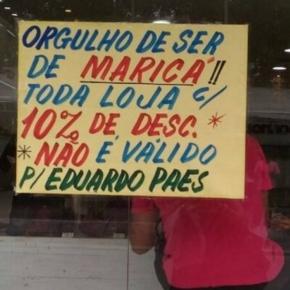 ORGULHO DE SER
DE MARICÁ!!
TODA LOJA c/
10% DE DESC. *
* NÃO É VÁLIDO
P/ EDUARDO PAES